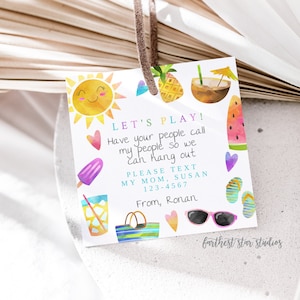 LET'S PLAY!
Have your people call
my people so we
can hang out
PLEASE TEXT
MY MOM, SUSAN
123-4567
From, Ronan
farthest star studios